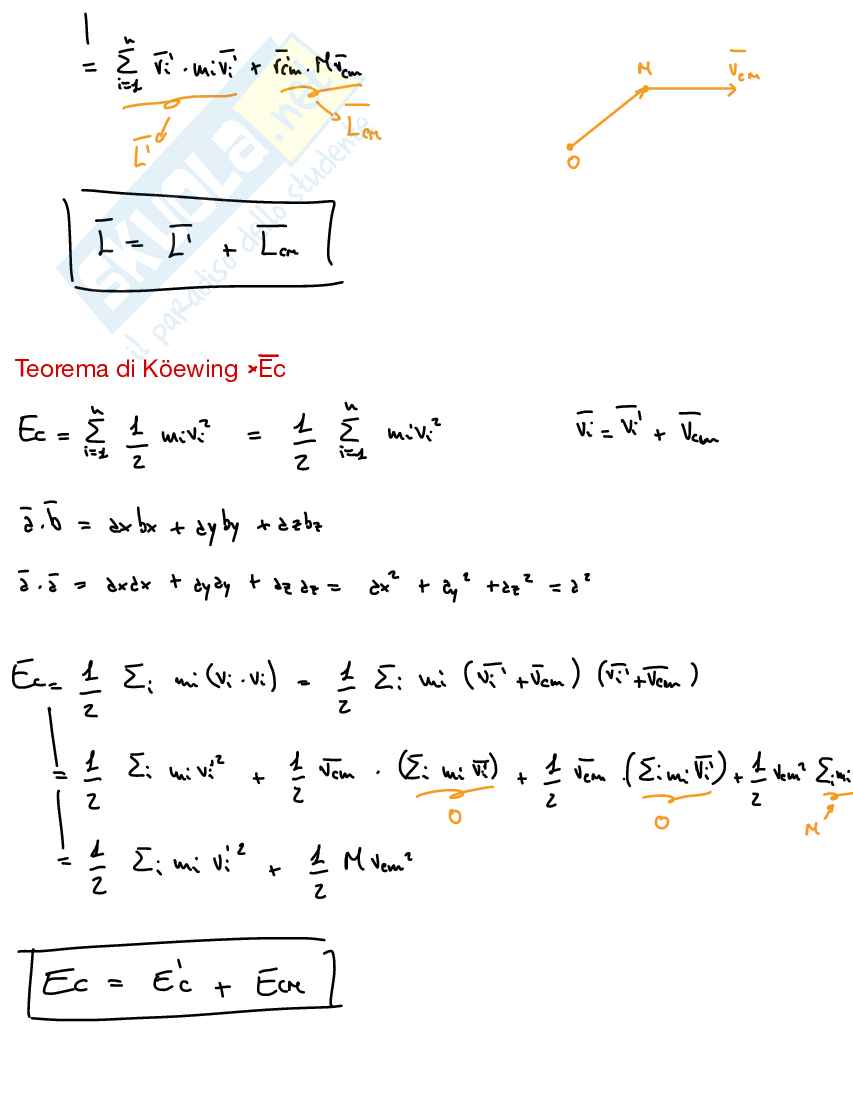 = Σ_{i=1}^{n} v̄i' · mi v̄i' + r̄'cm · M v̄cm
L̄' L̄cm
O M v̄cm
L̄ = L̄' + L̄cm
SKUOLA.net
il paradiso dello studente
Teorema di Köewing × Ēc
Ec = Σ_{i=1}^{n} 1/2 mi vi² = 1/2 Σ_{i=1}^{n} mi vi² v̄i = v̄i' + v̄cm
ā · b̄ = axbx + ayby + azbz
ā · ā = axax + ayay + azaz = ax² + ay² + az² = a²
Ec = 1/2 Σi mi (vi · vi) = 1/2 Σi mi (v̄i' + v̄cm) (v̄i' + v̄cm)
= 1/2 Σi mi vi'² + 1/2 v̄cm · (Σi mi v̄i') + 1/2 v̄cm · (Σi mi v̄i') + 1/2 vcm² Σi mi
0 0 M
= 1/2 Σi mi vi'² + 1/2 M vcm²
Ec = E'c + Ecm